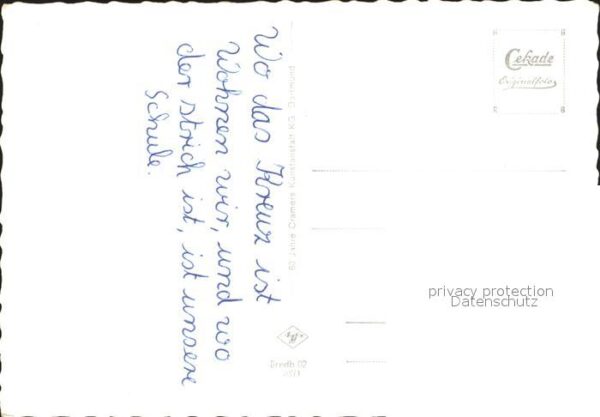 Wo das Kreuz ist
Wohnen wir, und wo
der strich ist, ist unsere
Schule.
60 Jahre Cramers Kunstanstalt KG. Dortmund
Cekade
Originalfoto
privacy protection
Datenschutz
Agfa